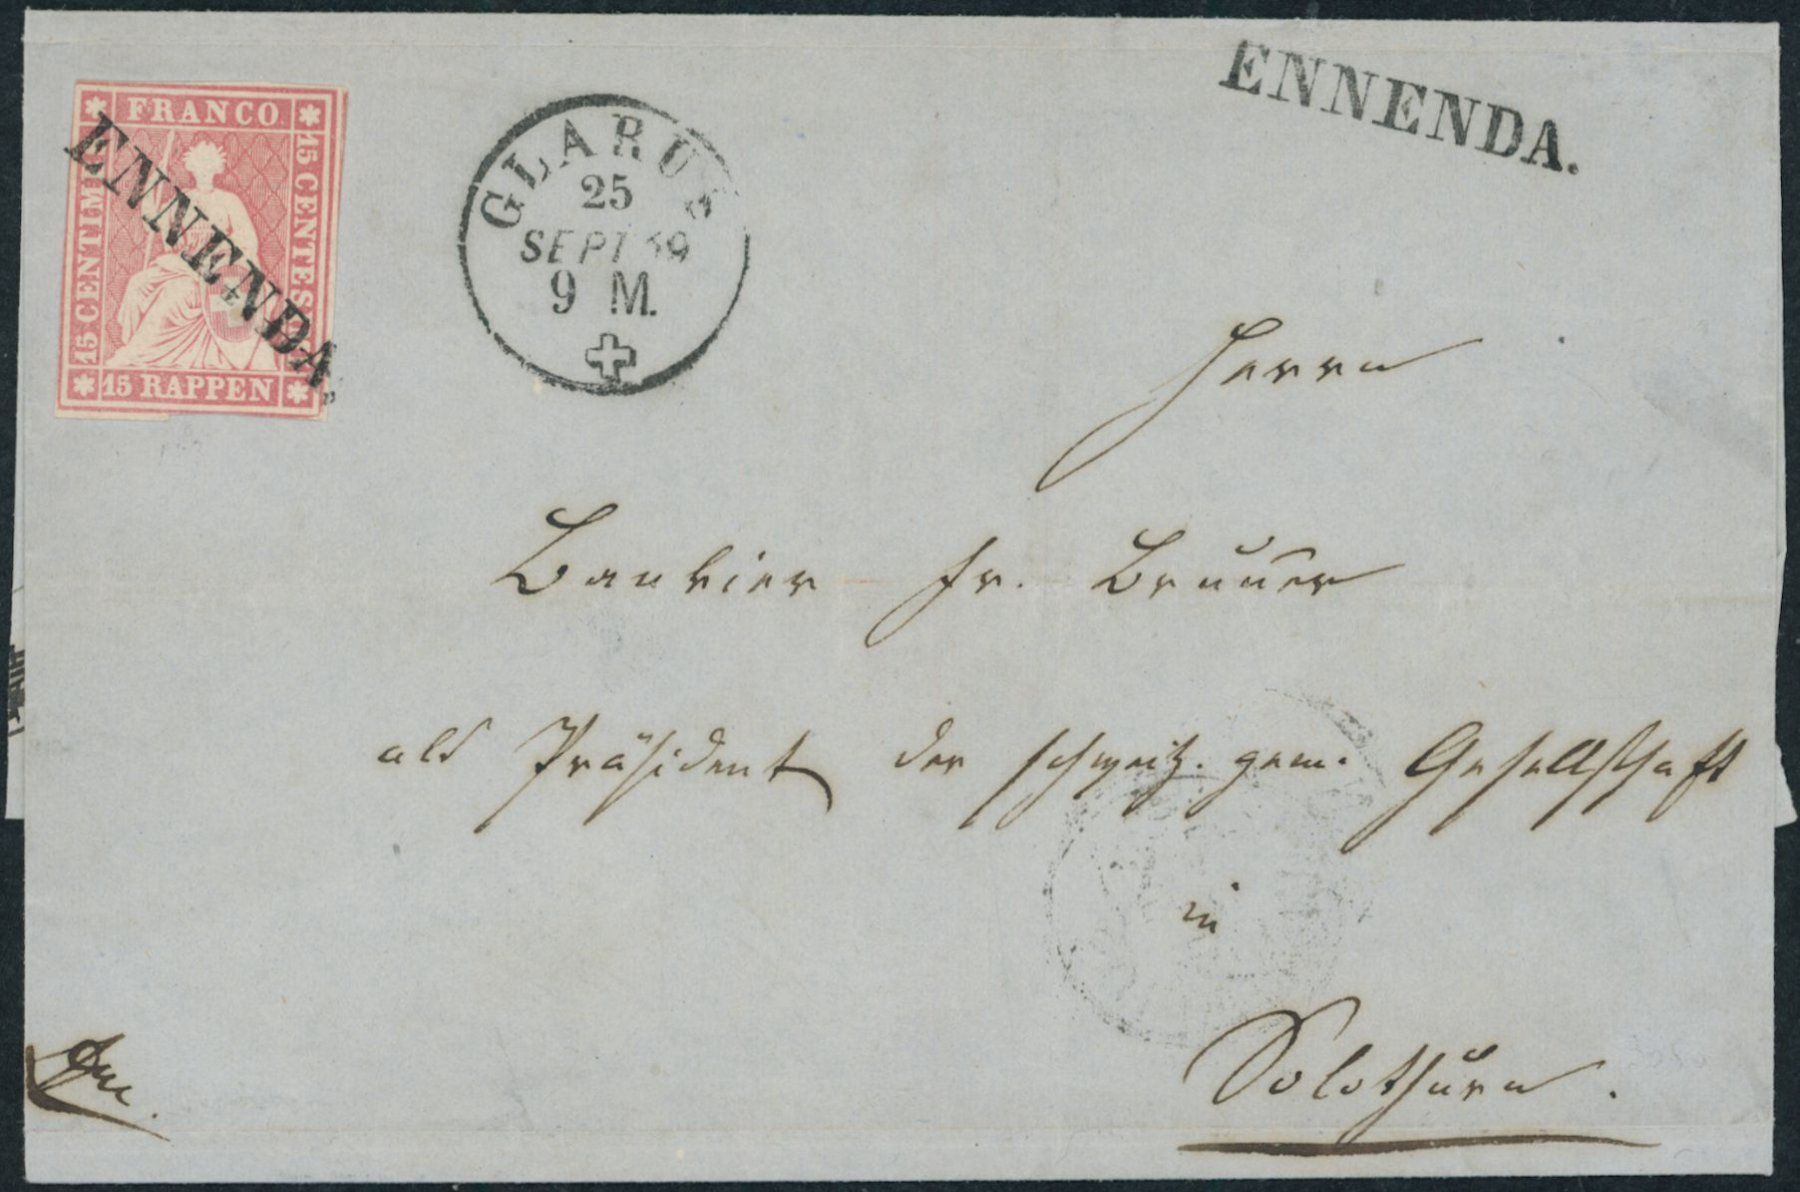 FRANCO.
15 CENTIMES
15 CENTES
15 RAPPEN
ENNENDA.
GLARUS
25
SEPT 59
9 M.
ENNENDA.
Herrn
Bankier Fr. Brunner
als Präsident der schweiz. gem. Gesellschaft
in
Solothurn.